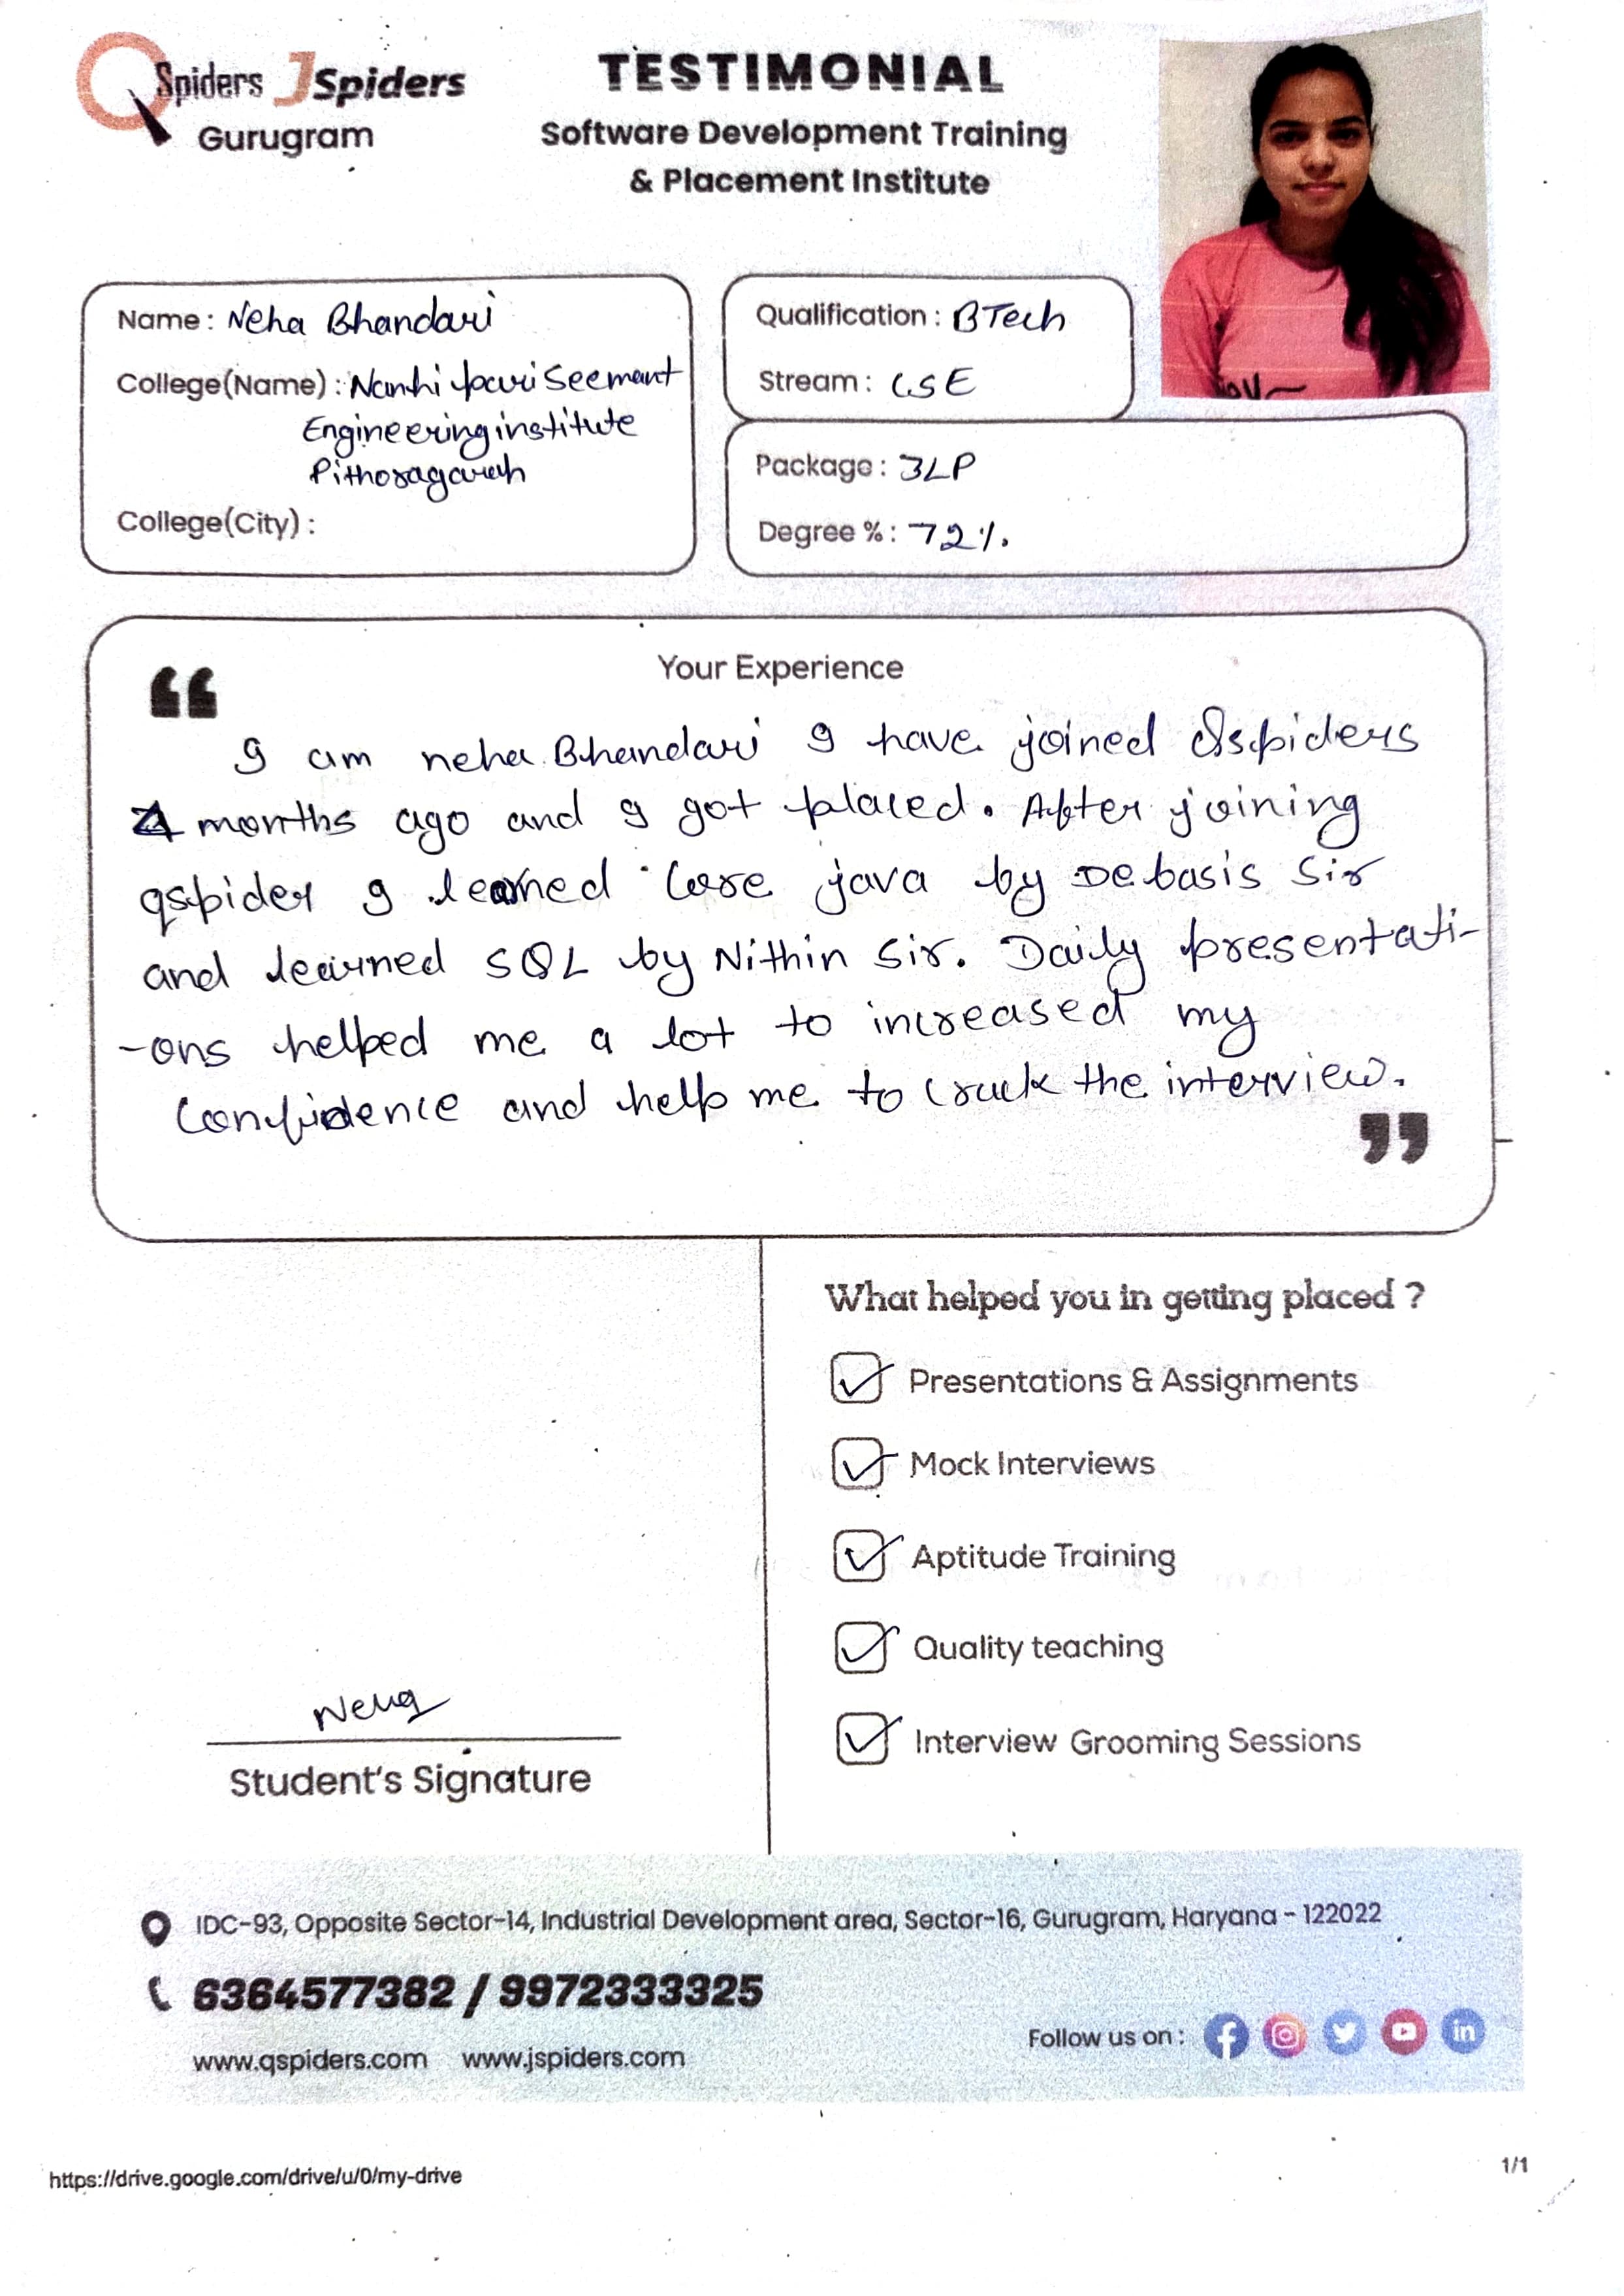 QSpiders JSpiders
Gurugram
TESTIMONIAL
Software Development Training
& Placement Institute
Name : Neha Bhandari
College(Name) : Nanhi pari Seemant
Engineering institute
Pithoragarah
College(City) :
Qualification : BTech
Stream : CSE
Package : 3LP
Degree % : 72%.
Your Experience
“
I am neha Bhandari I have joined Qspiders
4 months ago and I got placed. After joining
qspider I learned Core java by Debasis Sir
and learned SQL by Nithin Sir. Daily presentati-
-ons helped me a lot to increased my
Confidence and help me to crack the interview.
”
What helped you in getting placed ?
Presentations & Assignments
Mock Interviews
Aptitude Training
Quality teaching
Interview Grooming Sessions
Neha
Student's Signature
IDC-93, Opposite Sector-14, Industrial Development area, Sector-16, Gurugram, Haryana - 122022
6364577382 / 9972333325
www.qspiders.com www.jspiders.com
Follow us on :
https://drive.google.com/drive/u/0/my-drive
1/1